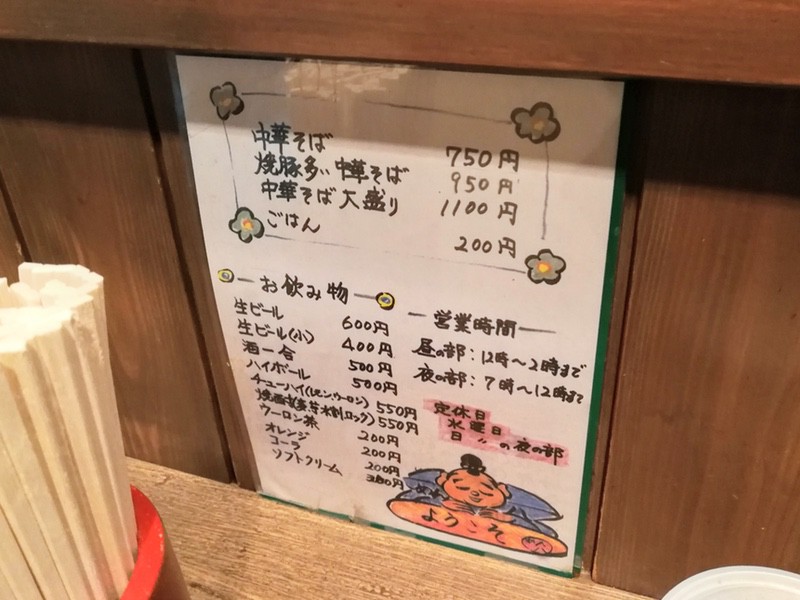 中華そば 750円
焼豚多い中華そば 950円
中華そば大盛り 1100円
ごはん 200円
お飲み物
生ビール 600円
生ビール(小) 400円
酒一合 500円
ハイボール 500円
チューハイ(レモン.ウーロン) 550円
焼酎 ロック) 550円
ウーロン茶 200円
オレンジ 200円
コーラ 200円
ソフトクリーム
営業時間
昼の部:12時~2時まで
夜の部:7時~12時まで
定休日
水曜日
日 〃 の夜の部
ようこそ